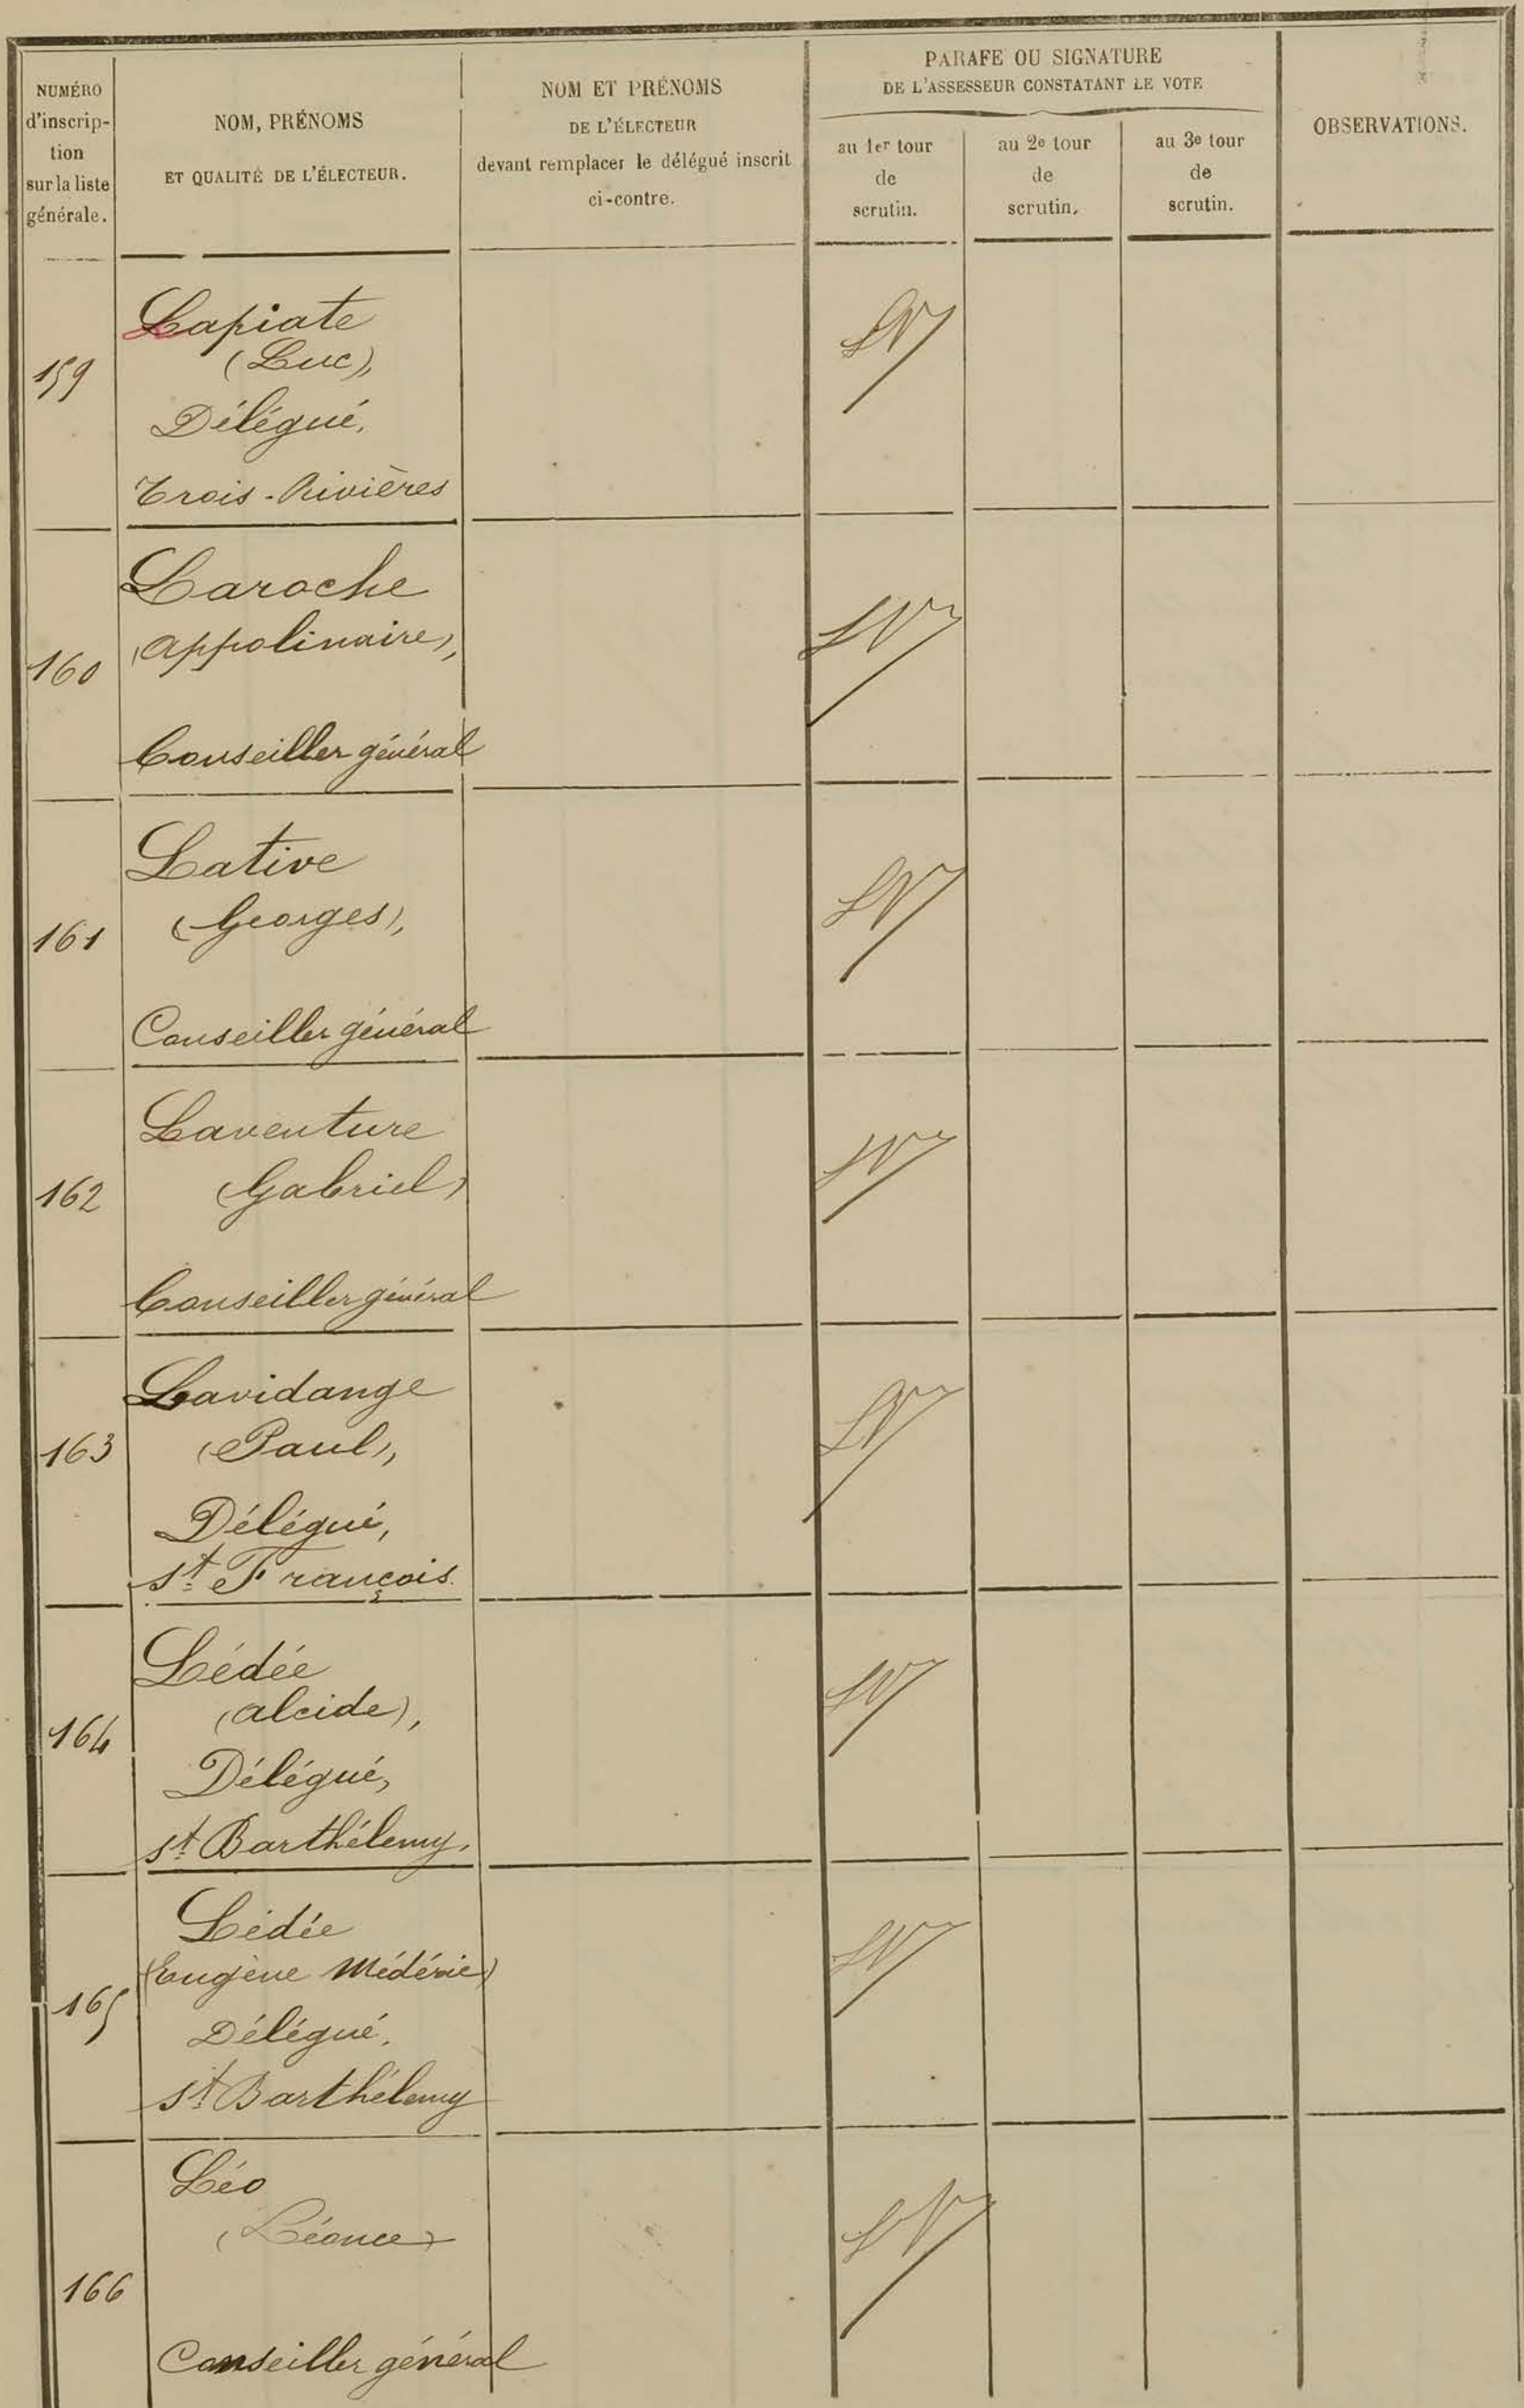 NUMÉRO
d'inscrip-
tion
sur la liste
générale.
NOM, PRÉNOMS
ET QUALITÉ DE L'ÉLECTEUR.
NOM ET PRÉNOMS
DE L'ÉLECTEUR
devant remplacer le délégué inscrit
ci-contre.
PARAFE OU SIGNATURE
DE L'ASSESSEUR CONSTATANT LE VOTE
au 1er tour
de
scrutin.
au 2e tour
de
scrutin.
au 3e tour
de
scrutin.
OBSERVATIONS.
159
Lapiate
(Luc),
Délégué,
Trois-Rivières
160
Laroche
(Appolinaire),
Conseiller général
161
Lative
(Georges),
Conseiller général
162
Laventure
(Gabriel)
Conseiller général
163
Lavidange
(Paul),
Délégué,
St François.
164
Lédée
(Alcide),
Délégué,
St Barthélemy.
165
Lédée
(Eugène Médéric)
Délégué.
St Barthélemy
166
Léo
(Léonce)
Conseiller général